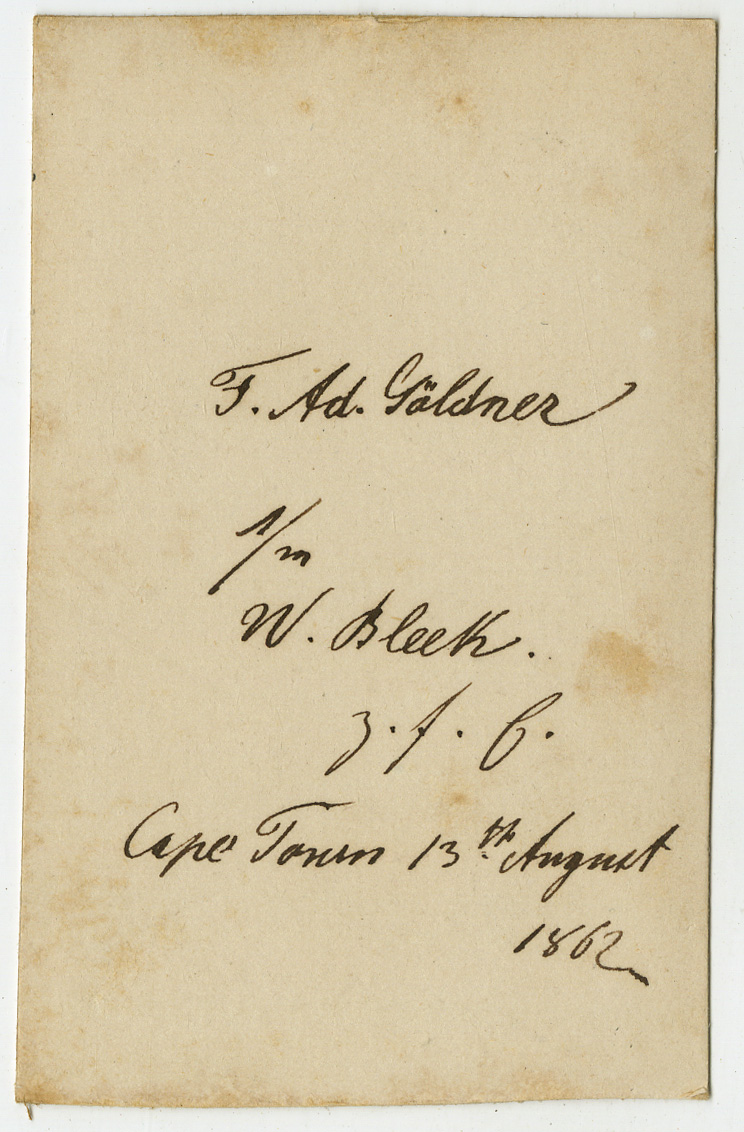 F. Ad. Göldner
s/m
W. Bleek.
z. f. E.
Cape Town 13th August
1862